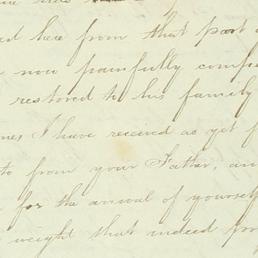 ed here from that part
now painfully comp
restored to his family
nes I have received as yet f
to from your Father, an
for the arrival of yourself
weight that indeed fro